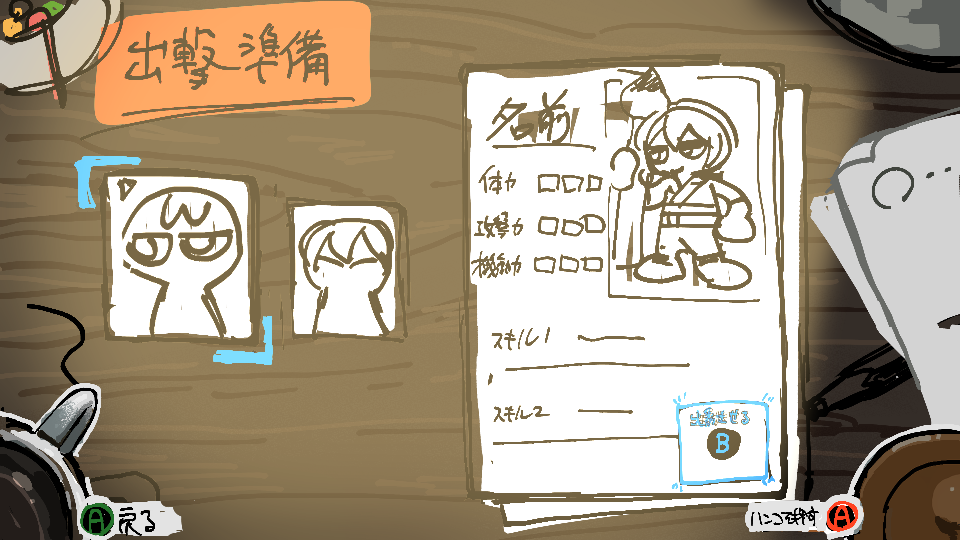 出撃準備
名前
体力
攻撃力
機動力
スキル1
スキル2
出撃させる
B
A 戻る
A